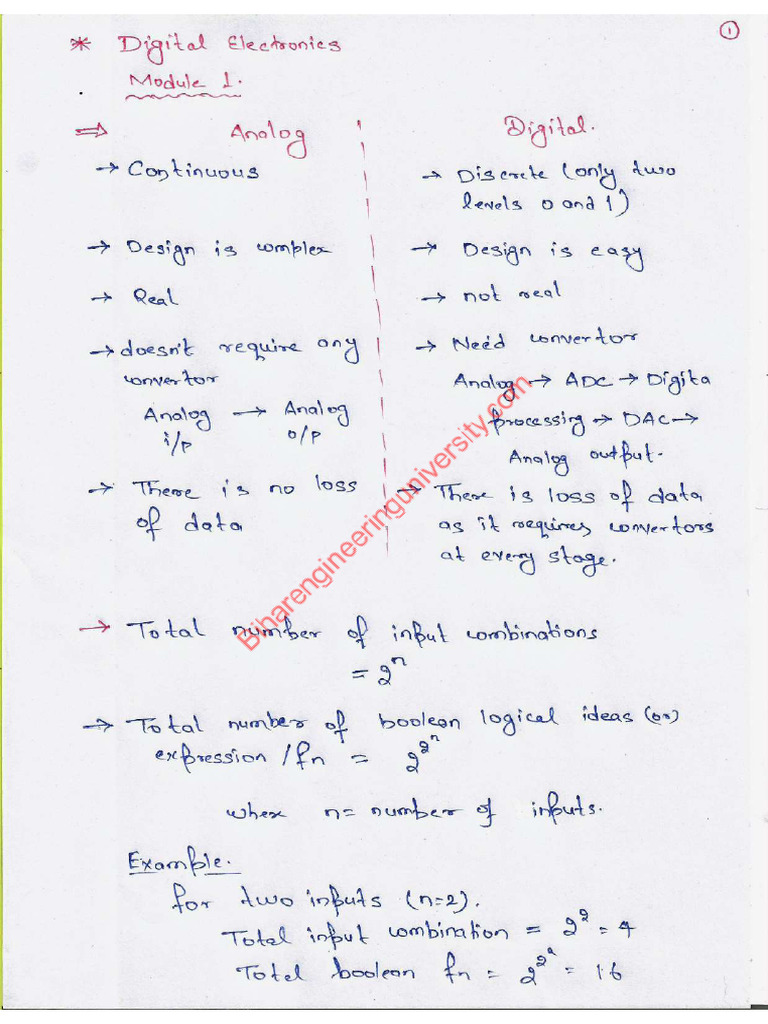 ①
* Digital Electronics
Module 1.
⇒ Analog
→ Continuous
→ Design is complex
→ Real
→ doesn't require any
convertor
Analog → Analog
i/p o/p
→ There is no loss
of data
Digital.
→ Discrete (only two
levels 0 and 1)
→ Design is easy
→ not real
→ Need convertor
Analog → ADC → Digita
processing → DAC →
Analog output.
→ There is loss of data
as it requires convertors
at every stage.
→ Total number of input combinations
= 2^n
→ Total number of boolean logical ideas (or)
expression / fn = 2^2^n
where n = number of inputs.
Example.
for two inputs (n=2).
Total input combination = 2^2 = 4
Total boolean fn = 2^2^2 = 16
Biharengineeringuniversity.com